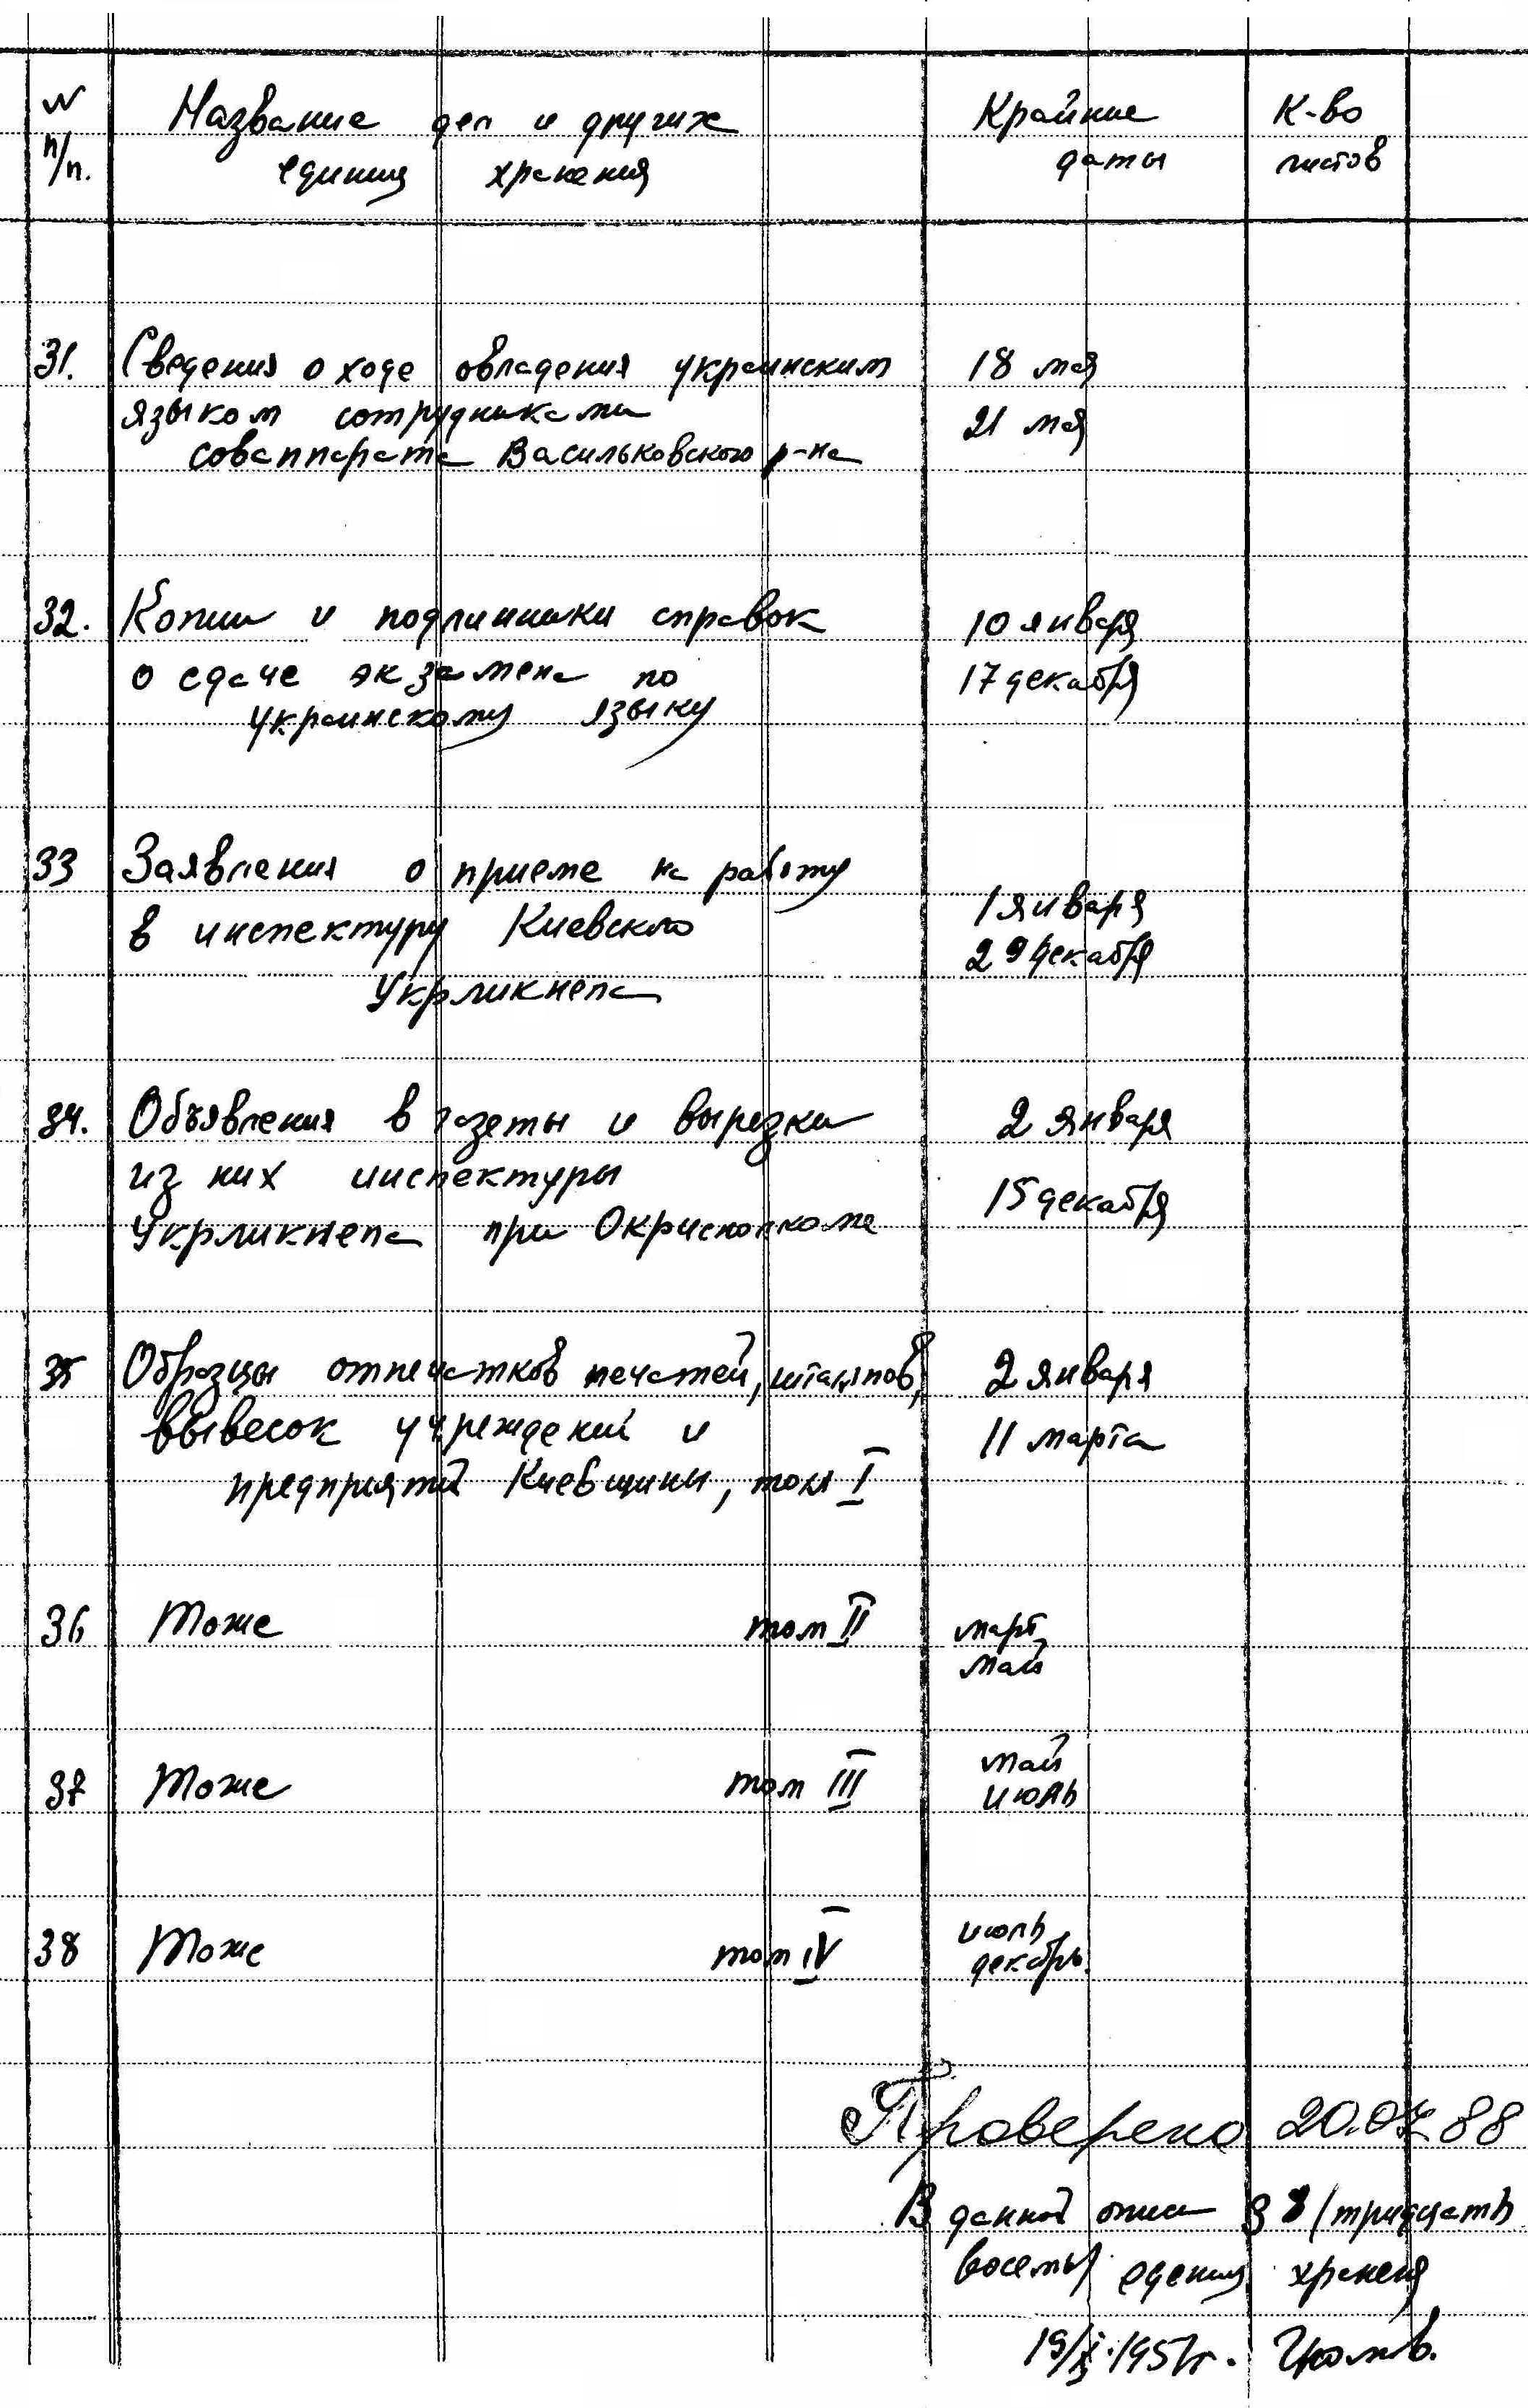 № п/п. Название дел и других единиц хранения Крайние даты К-во листов
31. Сведения о ходе овладения украинским 18 мая
языком сотрудниками 21 мая
соваппарата Васильковского р-на
32. Копии и подлинники справок 10 января
о сдаче экзамена по 17 декабря
украинскому языку
33 Заявления о приеме на работу
в инспектуру Киевского 1 января
29 декабря
Укрликнепа
34. Объявления в газеты и вырезки 2 января
из них инспектуры
15 декабря
Укрликнепа при Окрисполкоме
35 Образцы отпечатков печатей, штампов, 2 января
вывесок учреждений и 11 марта
предприятий Киевщины, том I
36 Тоже том II март
май
37 Тоже том III май
июль
38 Тоже том IV июль
декабрь.
Проверено 20.07.88
В данной описи 38 (тридцать
восемь) единиц хранения